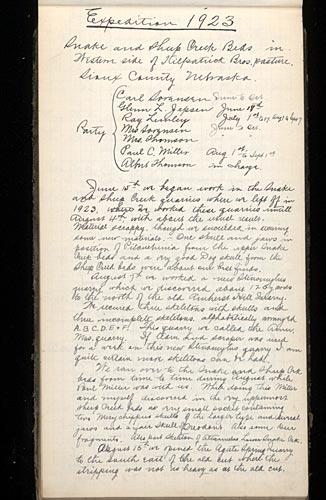 Expedition 1923
Snake and Sheep Creek Beds in
Western side of Kilpatrick Bros. pasture.
Sioux County Nebraska.
Carl Sorensen June to Oct.
Glenn L. Jepsen June 18th
Ray Lumley July 1st to
Party Mrs Sorensen June to Oct.
Mrs. Thomson
Paul C. Miller Aug 1st to Sept 1st
Albert Thomson in charge.
June 15th we began work in the Snake
and Sheep Creek quarries where we left off in
1923, where we worked these quarries until
August 4th, with about the usual results.
Material scrappy, though we succeeded in securing
some new materials. One skull and jaws in
position of from the upper Snake
Creek beds and a very good Dog skull from the
Sheep Creek beds were about our best finds.
August 7th we worked a new Stenomylus
quarry which we discovered about 12
to the north of the old Amherst Hill Quarry.
We secured three skeletons with skulls and
three incomplete skeletons, alphabetically arranged
A.B.C.D.E & F. This quarry we called the
Mrs. quarry. If team and scraper was used
for a week in this new Stenomylus quarry I am
quite certain more skeletons can be had.
We ran over to the Snake and Sheep Creek
beds from time to time during August while
Paul Miller was with us. While doing this Miller
and myself discovered in the upper
Sheep Creek beds a very small pocket containing
two Merychippus skulls of the larger type and several
jaws and a fair skull Also some
fragments. Also part skeleton
August 15th we opened the Agate Spring Quarry
to the South east of the old cut where the
stripping was not so heavy as at the old cut.